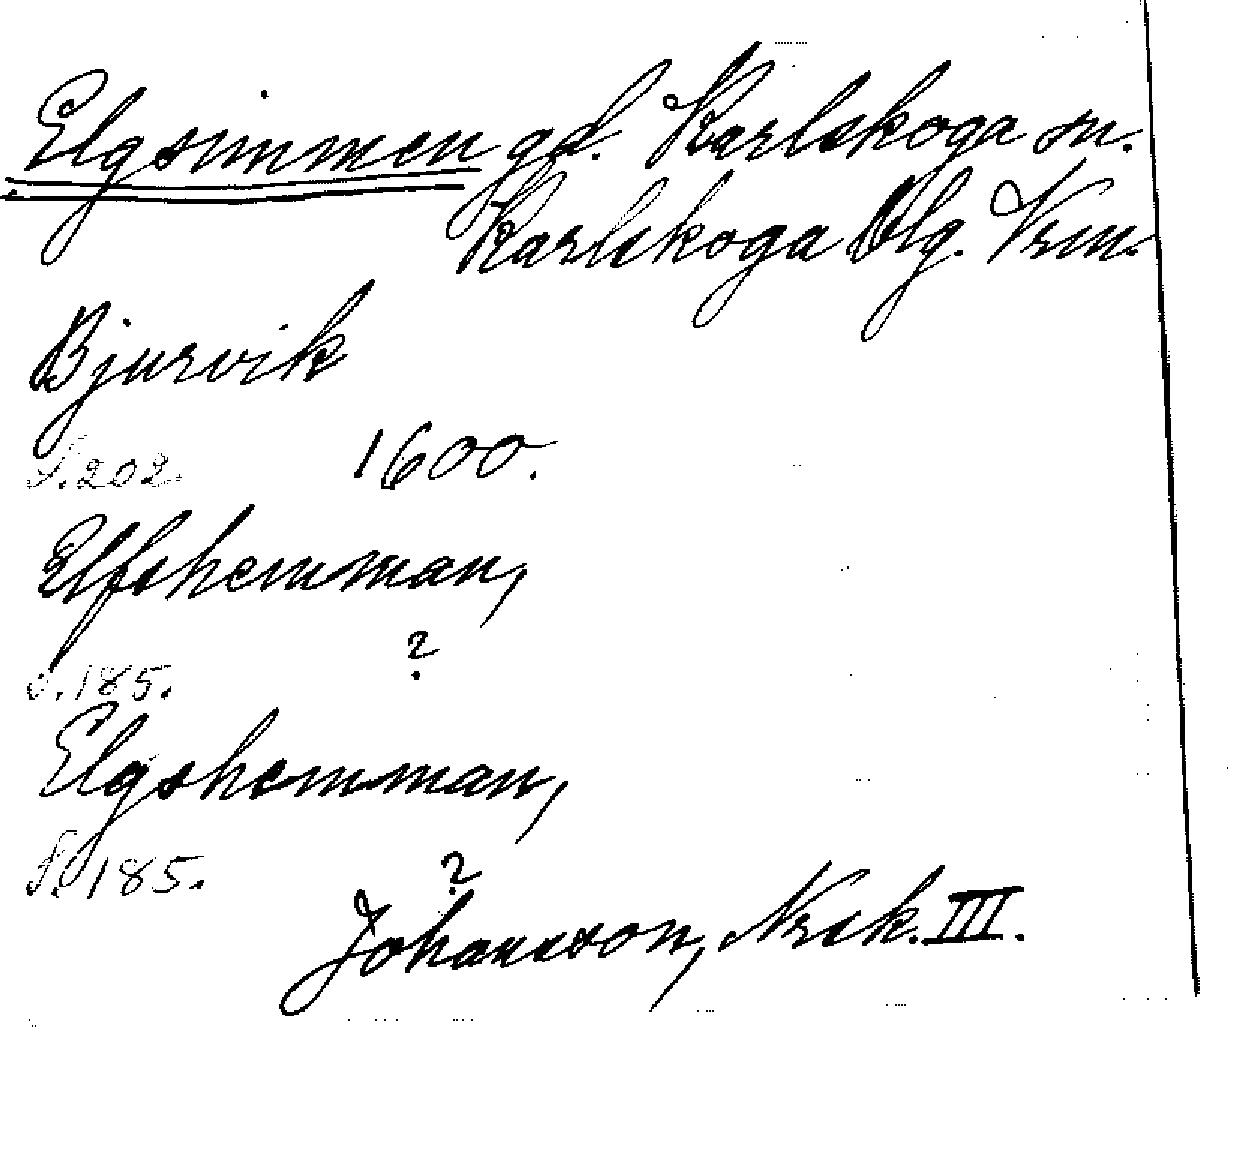 Elgsimmen gd. Karlskoga sn.
Karlskoga Blg. Vrm.
Bjurvik
S. 202. 1600.
Elfshemman,
S. 185. ?
Elgshemman,
S. 185. ?
Johansson, Nrsk. III.